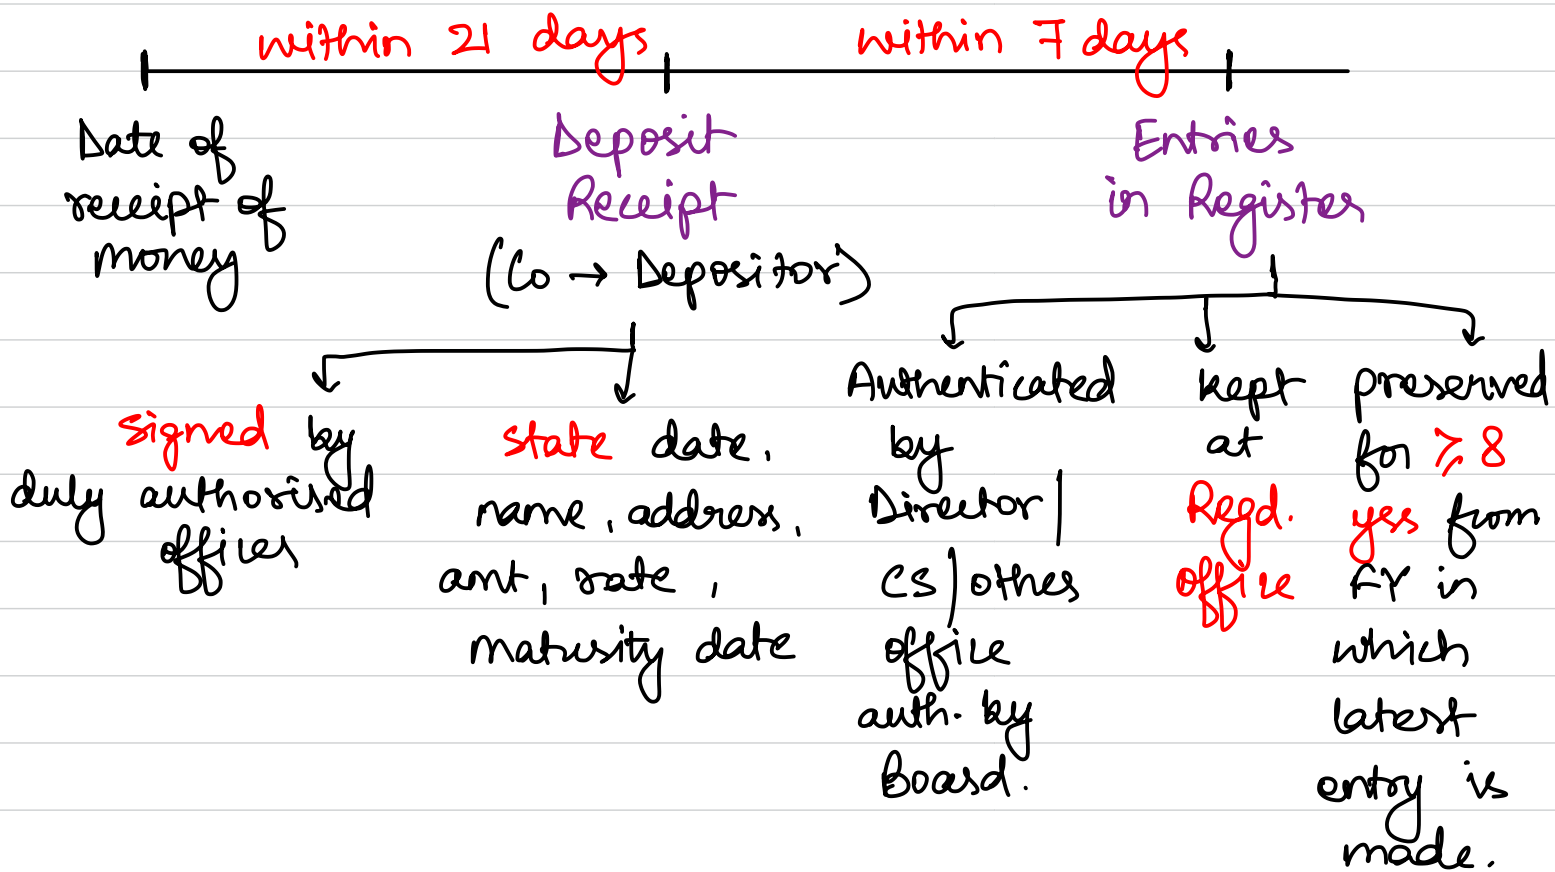 within 21 days
within 7 days
Date of
receipt of
money
Deposit
Receipt
(Co → Depositor)
Entries
in Register
signed by
duly authorised
officer
state date,
name, address,
amt, rate,
maturity date
Authenticated
by
Director/
CS/other
officer
auth. by
Board.
kept
at
Regd.
office
preserved
for ≥ 8
yrs from
FY in
which
latest
entry is
made.